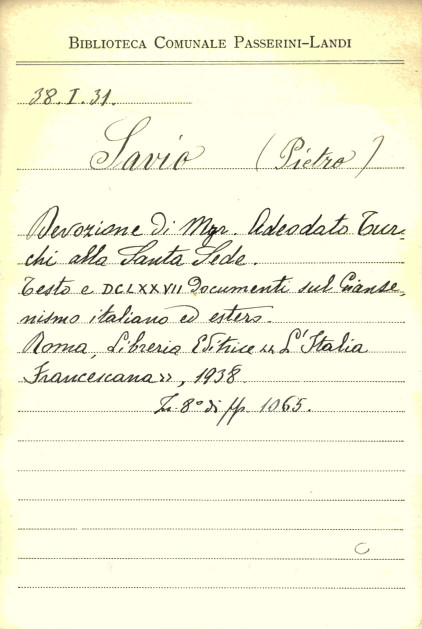 BIBLIOTECA COMUNALE PASSERINI-LANDI
38.I.31.
Savio (Pietro)
Devozione di Mgr. Adeodato Tur-
chi alla Santa Sede.
Testo e DCLXXVII Documenti sul Gianse-
nismo italiano ed estero.
Roma, Libreria Editrice «L'Italia
Francescana», 1938.
In-8° di pp. 1065.